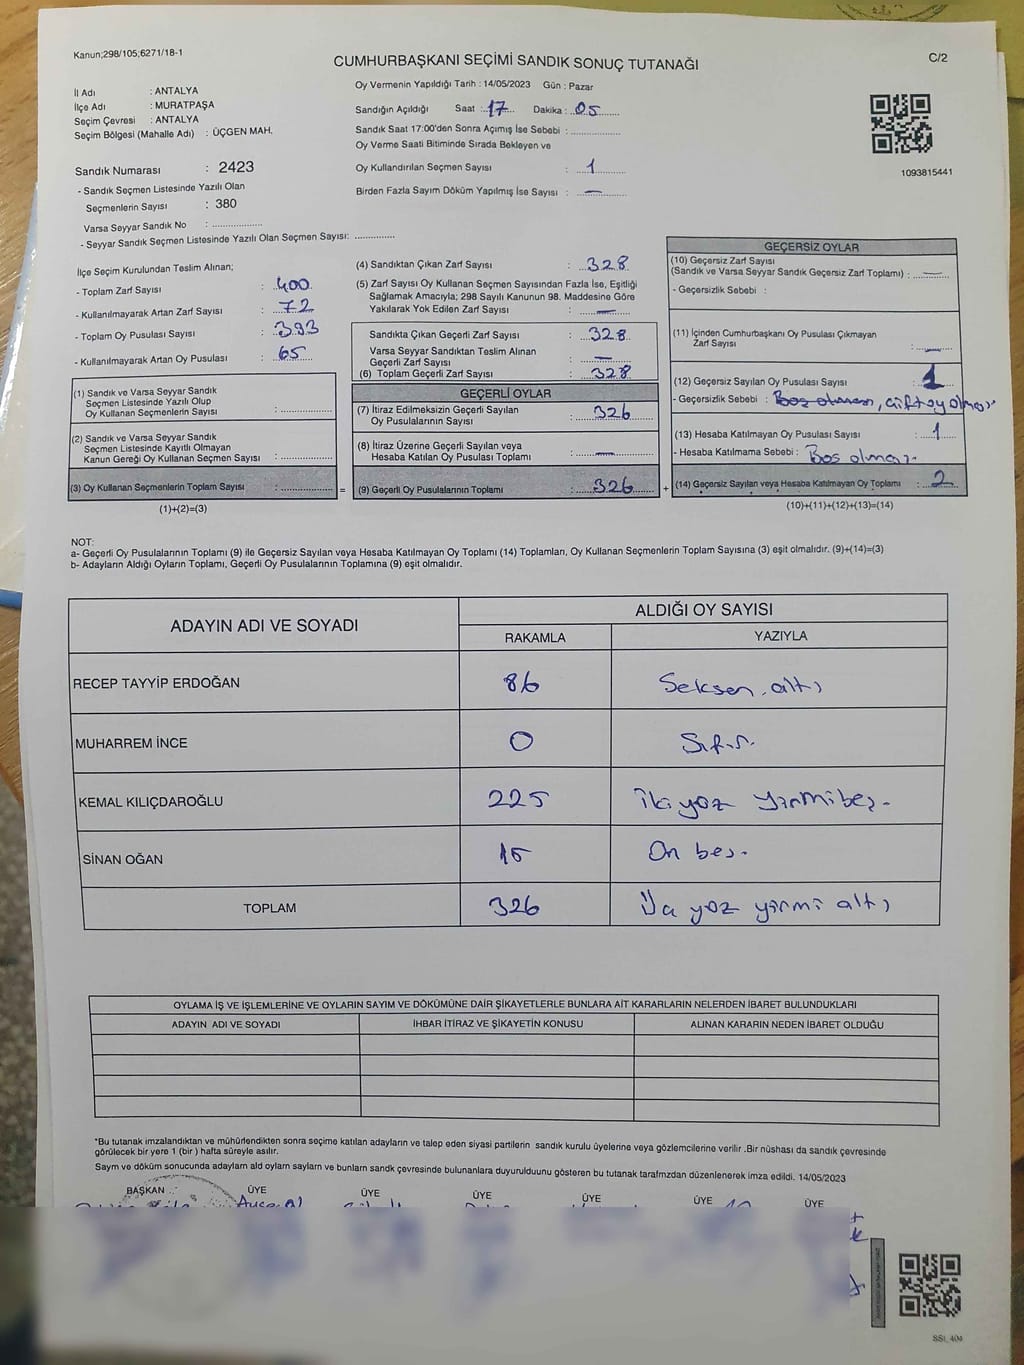 Kanun;298/105;6271/18-1
CUMHURBAŞKANI SEÇİMİ SANDIK SONUÇ TUTANAĞI
C/2
İl Adı : ANTALYA
İlçe Adı : MURATPAŞA
Seçim Çevresi : ANTALYA
Seçim Bölgesi (Mahalle Adı) : ÜÇGEN MAH.
Sandık Numarası : 2423
- Sandık Seçmen Listesinde Yazılı Olan
Seçmenlerin Sayısı : 380
Varsa Seyyar Sandık No : ..............
- Seyyar Sandık Seçmen Listesinde Yazılı Olan Seçmen Sayısı: ............
Oy Vermenin Yapıldığı Tarih : 14/05/2023 Gün : Pazar
Sandığın Açıldığı Saat : 17 Dakika : 05
Sandık Saat 17:00'den Sonra Açımış İse Sebebi : ..............
Oy Verme Saati Bitiminde Sırada Bekleyen ve
Oy Kullandırılan Seçmen Sayısı : 1
Birden Fazla Sayım Döküm Yapılmış İse Sayısı : —
1093815441
İlçe Seçim Kurulundan Teslim Alınan;
- Toplam Zarf Sayısı : 400
- Kullanılmayarak Artan Zarf Sayısı : 72
- Toplam Oy Pusulası Sayısı : 393
- Kullanılmayarak Artan Oy Pusulası : 65
(1) Sandık ve Varsa Seyyar Sandık
Seçmen Listesinde Yazılı Olup
Oy Kullanan Seçmenlerin Sayısı : ..............
(2) Sandık ve Varsa Seyyar Sandık
Seçmen Listesinde Kayıtlı Olmayan
Kanun Gereği Oy Kullanan Seçmen Sayısı : ..............
(3) Oy Kullanan Seçmenlerin Toplam Sayısı : ..............
(1)+(2)=(3)
(4) Sandıktan Çıkan Zarf Sayısı : 328
(5) Zarf Sayısı Oy Kullanan Seçmen Sayısından Fazla İse, Eşitliği
Sağlamak Amacıyla; 298 Sayılı Kanunun 98. Maddesine Göre
Yakılarak Yok Edilen Zarf Sayısı : —
Sandıkta Çıkan Geçerli Zarf Sayısı : 328
Varsa Seyyar Sandıktan Teslim Alınan
Geçerli Zarf Sayısı : —
(6) Toplam Geçerli Zarf Sayısı : 328
GEÇERLİ OYLAR
(7) İtiraz Edilmeksizin Geçerli Sayılan
Oy Pusulasının Sayısı : 326
(8) İtiraz Üzerine Geçerli Sayılan veya
Hesaba Katılan Oy Pusulası Toplamı : —
= (9) Geçerli Oy Pusulalarının Toplamı : 326 +
GEÇERSİZ OYLAR
(10) Geçersiz Zarf Sayısı
(Sandık ve Varsa Seyyar Sandık Geçersiz Zarf Toplamı) : —
- Geçersizlik Sebebi :
(11) İçinden Cumhurbaşkanı Oy Pusulası Çıkmayan
Zarf Sayısı : —
(12) Geçersiz Sayılan Oy Pusulası Sayısı : 1
- Geçersizlik Sebebi : Boş olması, çift oy olması
(13) Hesaba Katılmayan Oy Pusulası Sayısı : 1
- Hesaba Katılmama Sebebi : Boş olması.
(14) Geçersiz Sayılan veya Hesaba Katılmayan Oy Toplamı : 2
(10)+(11)+(12)+(13)=(14)
NOT:
a- Geçerli Oy Pusulalarının Toplamı (9) ile Geçersiz Sayılan veya Hesaba Katılmayan Oy Toplamı (14) Toplamları, Oy Kullanan Seçmenlerin Toplam Sayısına (3) eşit olmalıdır. (9)+(14)=(3)
b- Adayların Aldığı Oyların Toplamı, Geçerli Oy Pusulalarının Toplamına (9) eşit olmalıdır.
ADAYIN ADI VE SOYADI
ALDIĞI OY SAYISI
RAKAMLA YAZIYLA
RECEP TAYYİP ERDOĞAN 86 Seksen altı
MUHARREM İNCE 0 Sıfır.
KEMAL KILIÇDAROĞLU 225 İki yüz yirmi beş.
SİNAN OĞAN 15 On beş.
TOPLAM 326 Üç yüz yirmi altı
OYLAMA İŞ VE İŞLEMLERİNE VE OYLARIN SAYIM VE DÖKÜMÜNE DAİR ŞİKAYETLERLE BUNLARA AİT KARARLARIN NELERDEN İBARET BULUNDUKLARI
ADAYIN ADI VE SOYADI İHBAR İTİRAZ VE ŞİKAYETİN KONUSU ALINAN KARARIN NEDEN İBARET OLDUĞU
*Bu tutanak imzalandıktan ve mühürlendikten sonra seçime katılan adayların ve talep eden siyasi partilerin sandık kurulu üyelerine veya gözlemcilerine verilir .Bir nüshası da sandık çevresinde
görülecek bir yere 1 (bir ) hafta süreyle asılır.
Sayım ve döküm sonucunda adayların ald oyların sayları ve bunların sandk çevresinde bulunanlara duyurulduunu gösteren bu tutanak tarafmzdan düzenlenerek imza edildi. 14/05/2023
BAŞKAN ÜYE ÜYE ÜYE ÜYE ÜYE ÜYE
SSİ, 404